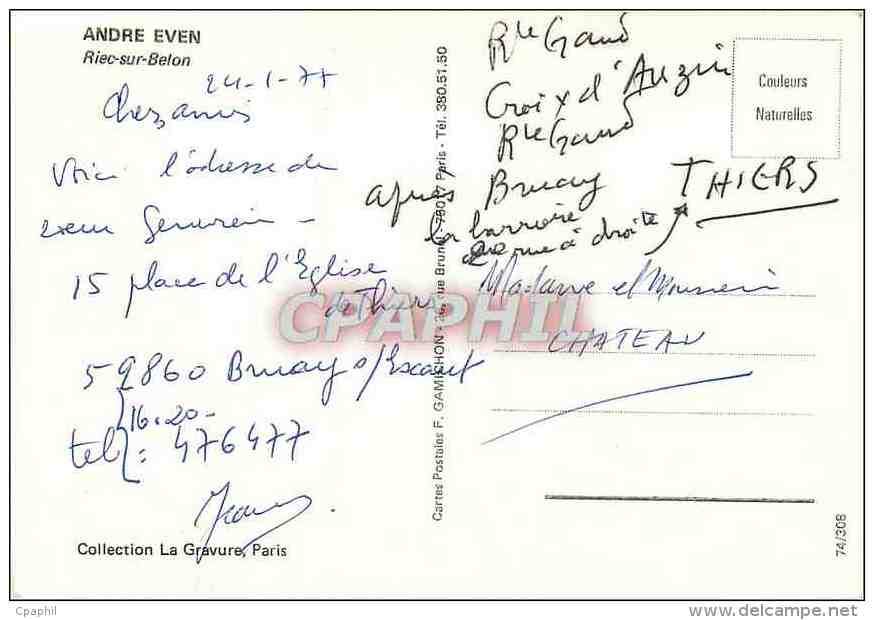 ANDRE EVEN
Riec-sur-Belon
24-1-77
Chers amis
Voici l'adresse de
15 place de l'Eglise
de Thiers
59860 Bruay s/Escaut
16.20-
tel : 476477
Collection La Gravure, Paris
Cartes Postales F. GAMICHON - 26, rue Brunel, 75017 Paris - Tél. 380.51.50
Rte Gand
Croix d'Anzin
Rte Gand
après Bruay
la barrière
rue à droite
THIERS
Couleurs
Naturelles
Madame et Monsieur
CHATEAU
74/308
CPAPHIL
Cpaphil
www.delcampe.net